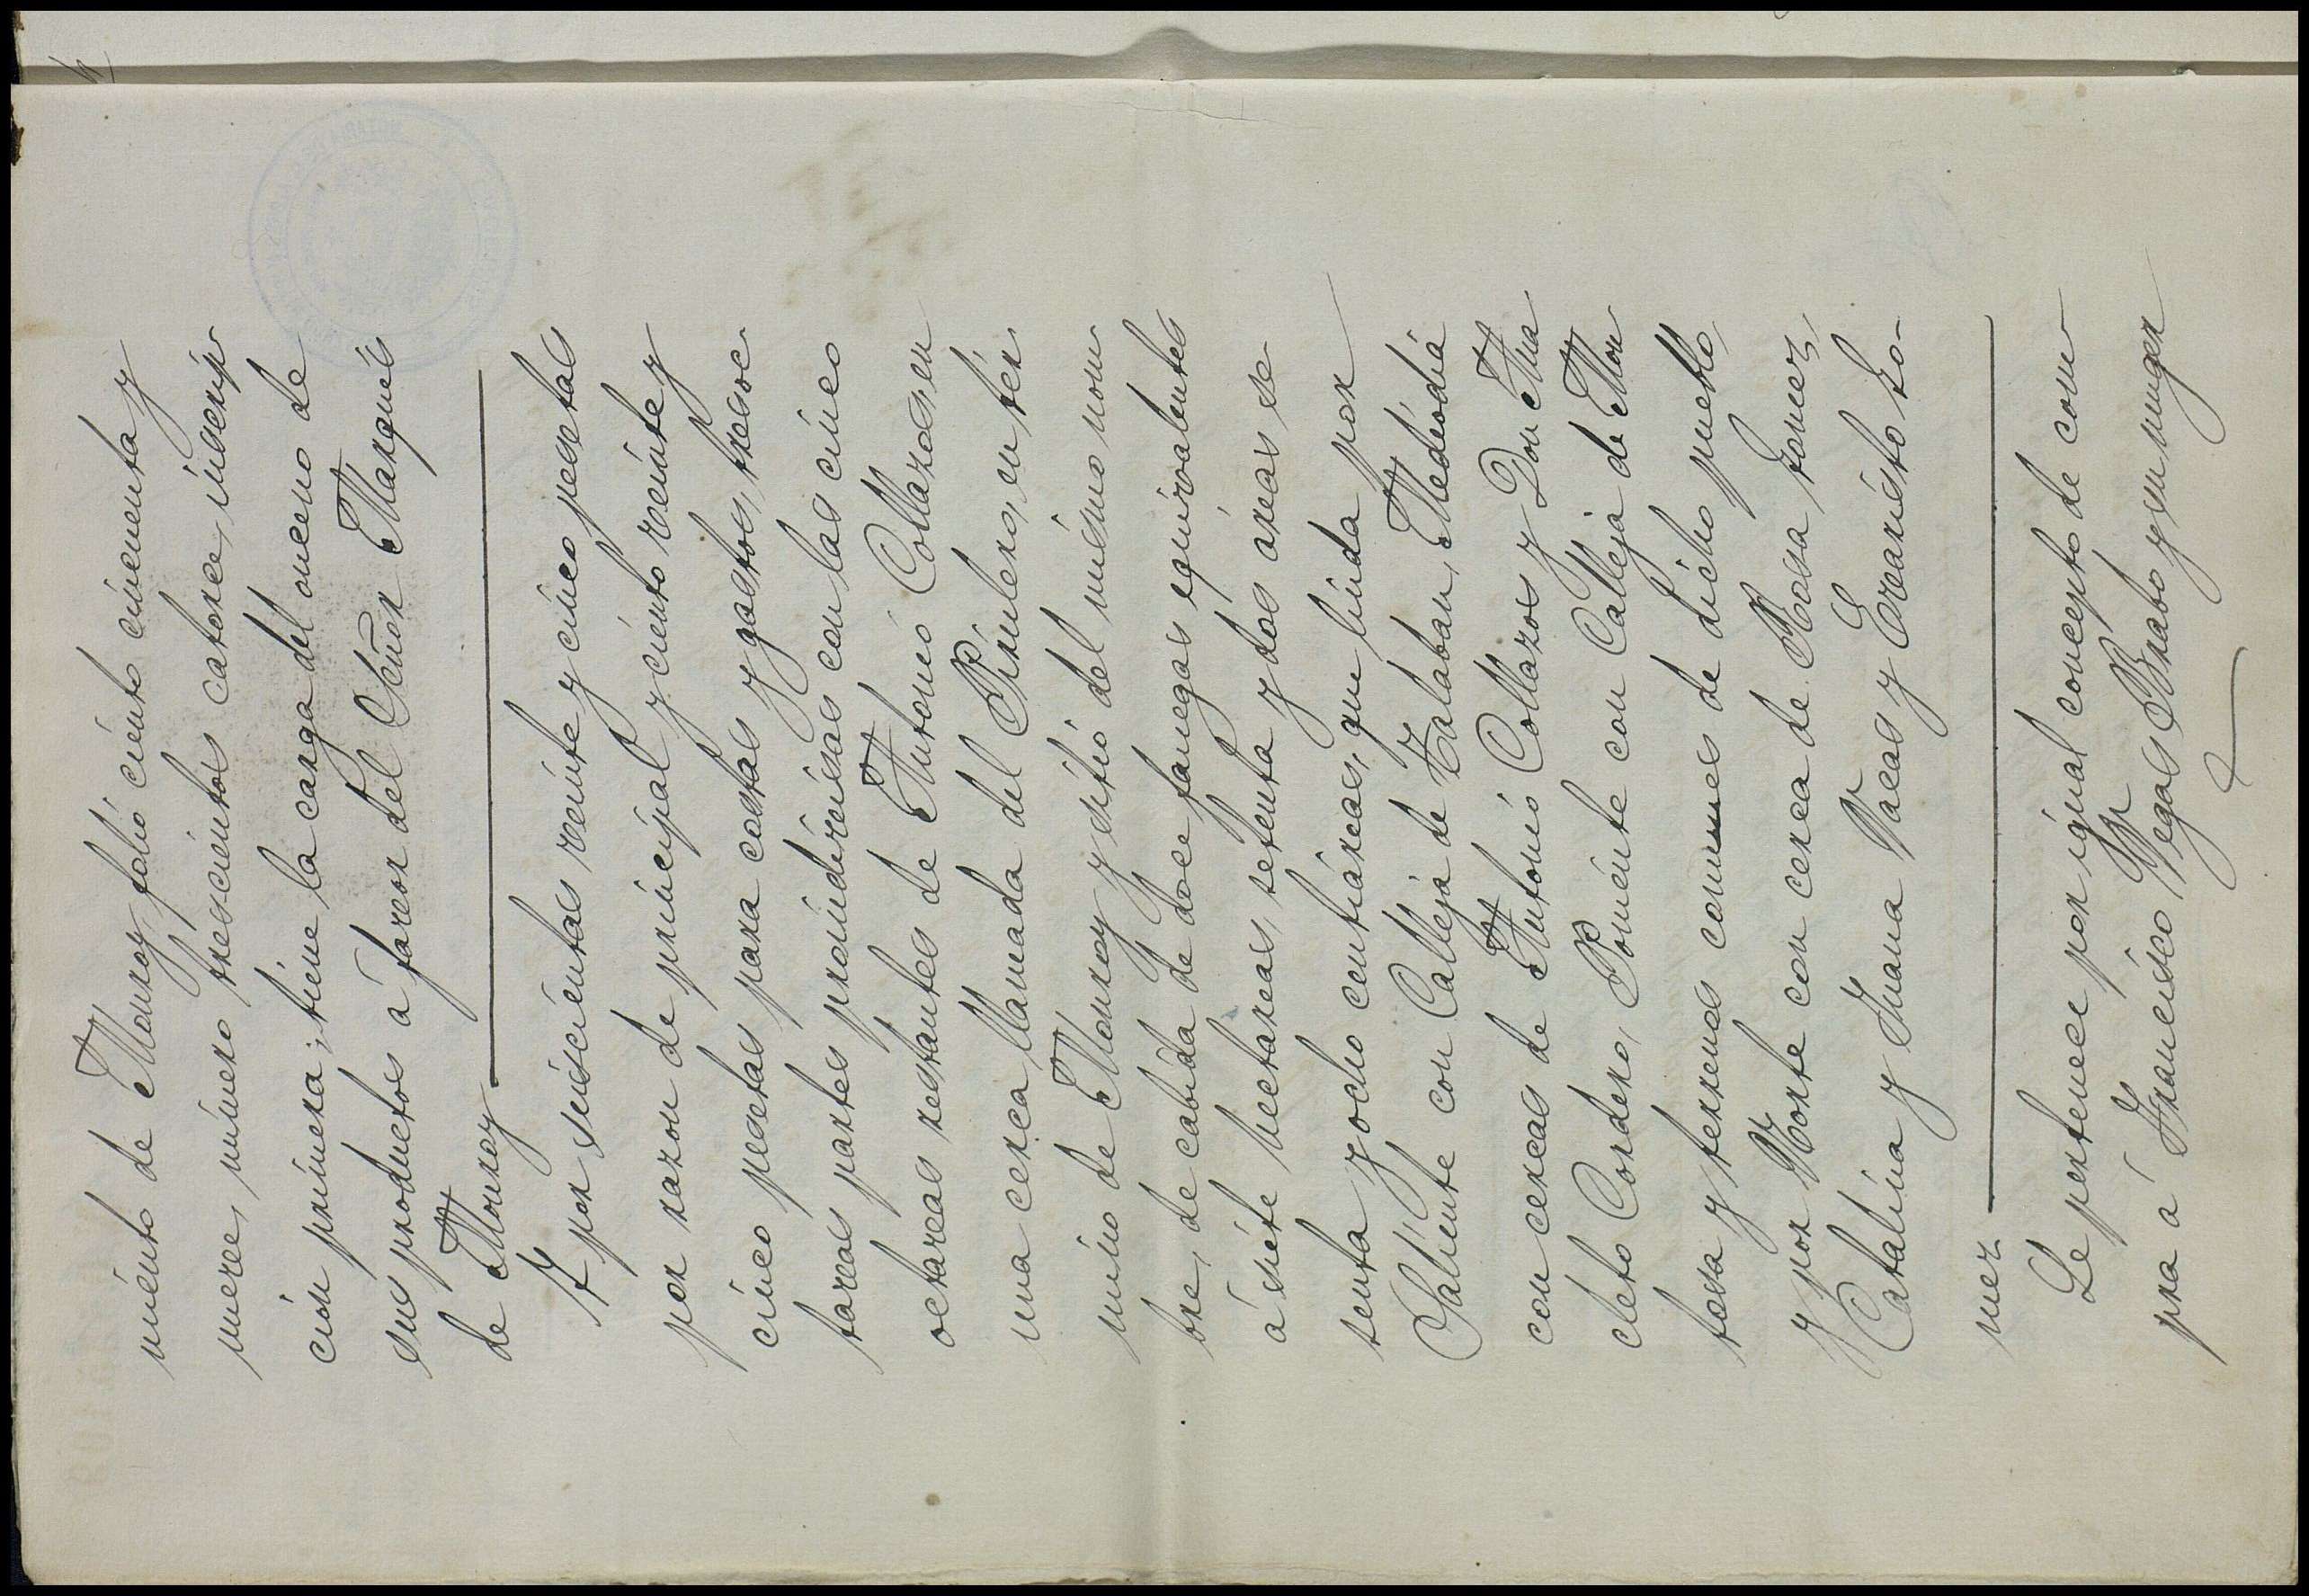 miento de Monroy folio ciento cincuenta y
nueve, número trescientos catorce, inscrip
ción primera; tiene la carga del onceno de
sus productos á favor del Señor Marqués
de Monroy
Y por seiscientas veinte y cinco pesetas
por razon de principal y ciento veinte y
cinco pesetas para costas y gastos, trece
partes proindivisas con las cinco
restantes de Antonio Collazos, en
una cerca llamada del Pirulero, en tér
mino de Monroy y sitio del mismo nom
bre, de cabida de doce fanegas equivalentes
á siete hectareas, setenta y dos areas se
senta y ocho centiáreas, que linda por
Saliente con Calleja de Talaban, Mediodia
con cercas de Antonio Collazos y Don Ana
cleto Cordero, Poniente con Calleja de Mon
tosa y terrenos comunes de dicho pueblo,
y por Norte con cerca de Rosa, Tomer,
Catalina y Juana Vacas y Evaristo Go-
mez
Le pertenece por igual concepto de com
pra á Francisco Vegas Brabo y su muger